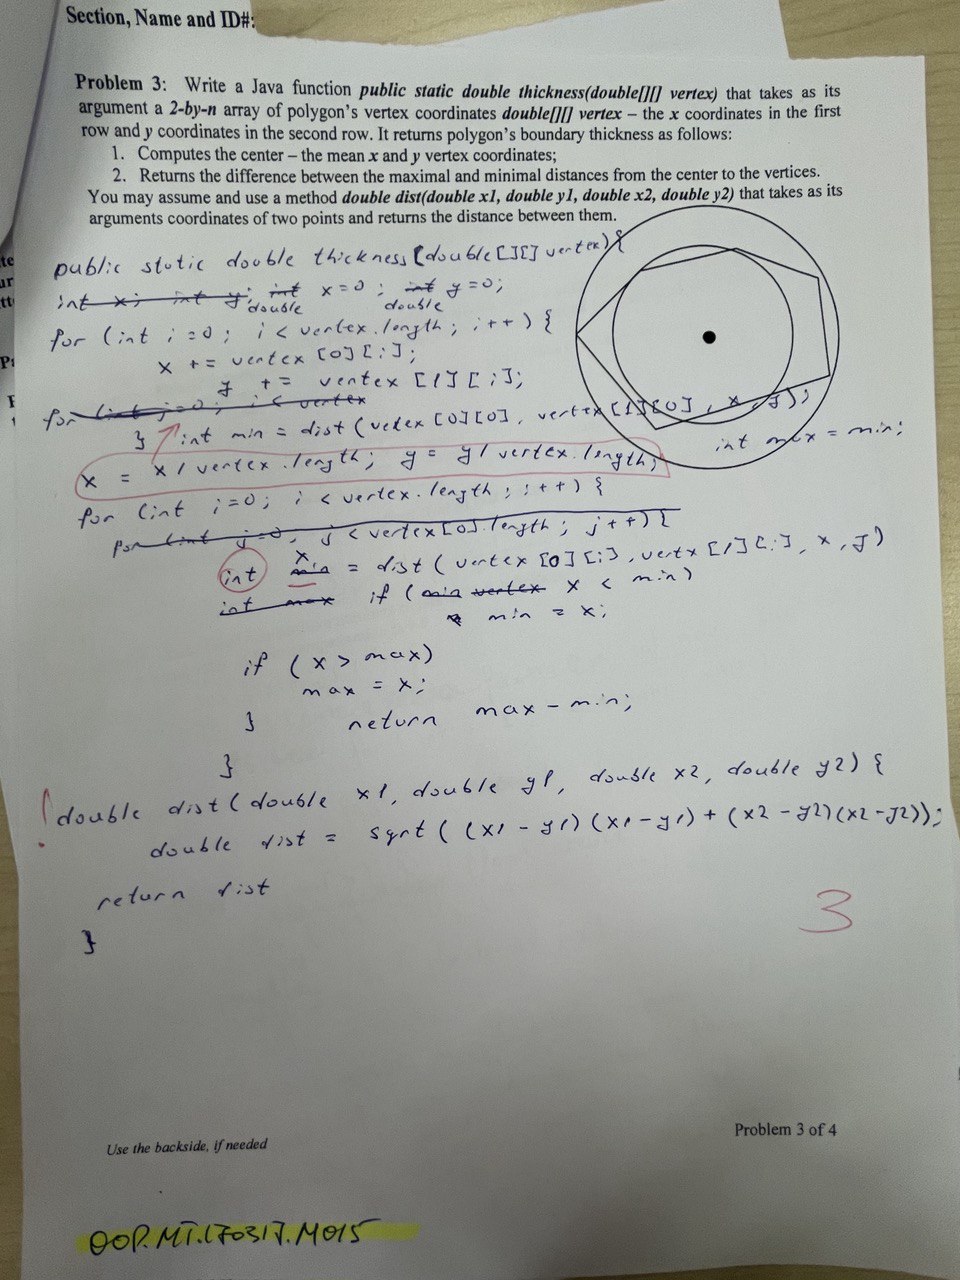 Section, Name and ID#:
Problem 3: Write a Java function public static double thickness(double[][] vertex) that takes as its
argument a 2-by-n array of polygon's vertex coordinates double[][] vertex – the x coordinates in the first
row and y coordinates in the second row. It returns polygon's boundary thickness as follows:
1. Computes the center – the mean x and y vertex coordinates;
2. Returns the difference between the maximal and minimal distances from the center to the vertices.
You may assume and use a method double dist(double x1, double y1, double x2, double y2) that takes as its
arguments coordinates of two points and returns the distance between them.
public static double thickness(double[][] vertex){
int x; int y; int x=0; int y=0;
double double
for (int i=0; i < vertex.length; i++) {
x += vertex [0][i];
y += vertex [1][i];
for (int j=0; i < vertex
} int min = dist(vetex [0][0], vertex[1][0], x, y);
int max = min;
x = x / vertex.length; y = y / vertex.length;
for (int i=0; i < vertex.length; i++) {
for (int j=0; j < vertex[0].length; j++) {
x
int min = dist (vertex [0][i], vertx [1][i], x, y)
int max if (min vertex x < min)
min = x;
if (x > max)
max = x;
} return max - min;
}
! double dist (double x1, double y1, double x2, double y2) {
double dist = sqrt ( (x1 - y1) (x1 - y1) + (x2 - y2)(x2 - y2));
return dist
}
3
Use the backside, if needed
Problem 3 of 4
OOP.MT.170317.M015